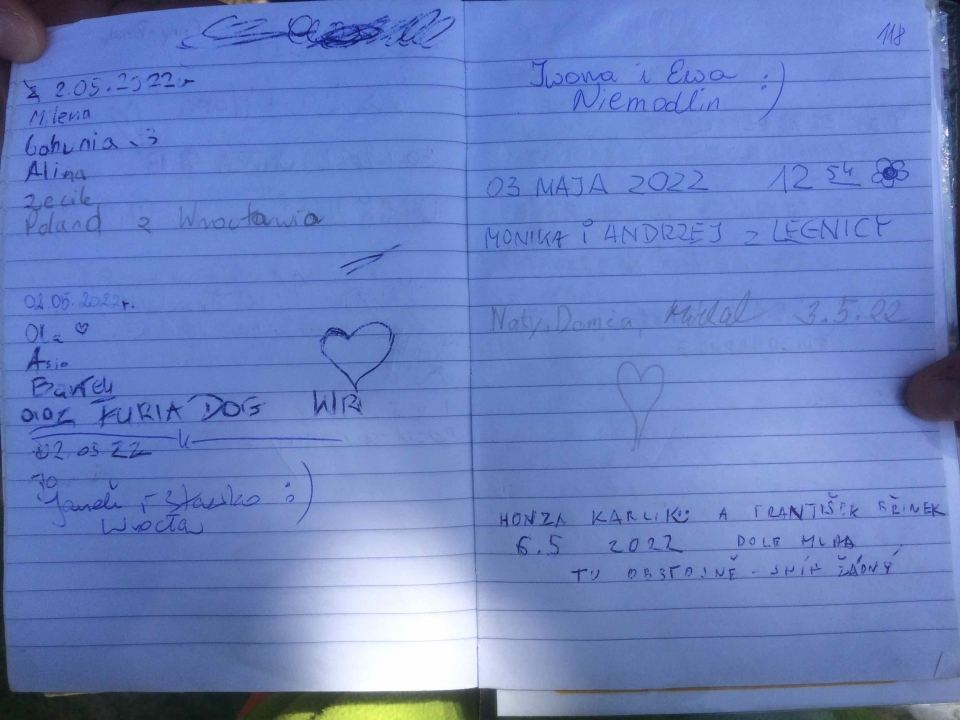 2.05.2022r
Milena
Alina
Poland z Wrocławia
02.05.2022r.
Ola
Asia
Bartek
oraz FURIA DOG WR
02 05 22
Wrocła
118
Iwona i Ewa :)
Niemodlin
03 MAJA 2022 12 54
MONIKA i ANDRZEJ z LEGNICY
Naty, Damia, Michal 3.5.22
HONZA KARLIK A FRANTIŠEK
6.5 2022 DOLE MLHA
TU OBSTOJNĚ - SNÍH ŽÁDNÝ